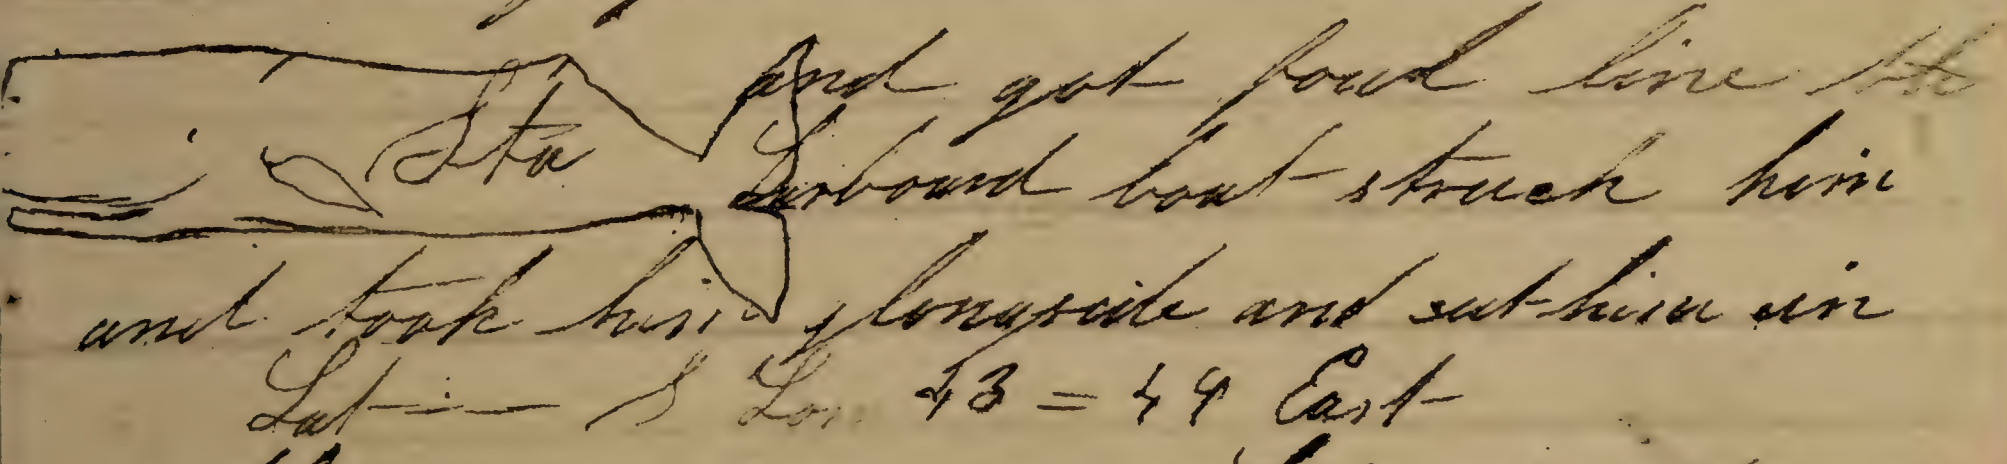 and got foul line
Sta Larboard boat struck him
and took him alongside and cut him in
Lat — S Lon East